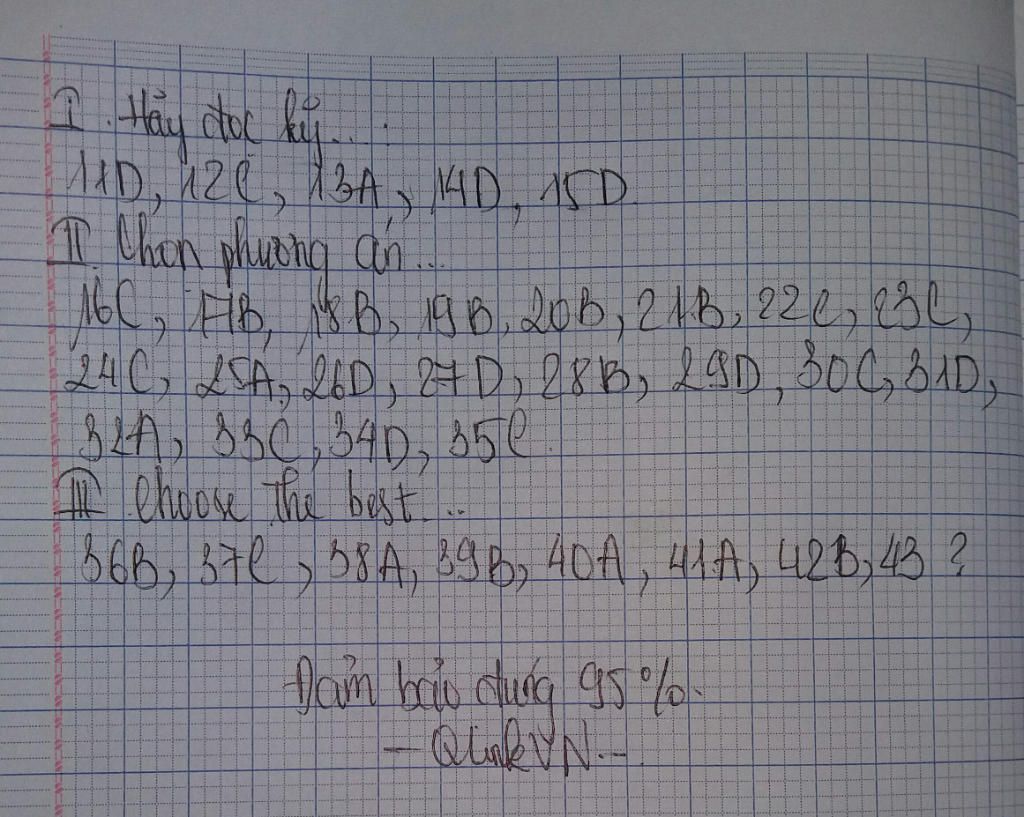 I. Hãy đọc kỹ....
11D, 12C, 13A, 14D, 15D.
II. Chọn phương án...
16C, 17B, 18B, 19B, 20B, 21B, 22C, 23C,
24C, 25A, 26D, 27D, 28B, 29D, 30C, 31D,
32A, 33C, 34D, 35C.
III Choose the best...
36B, 37C, 38A, 39B, 40A, 41A, 42B, 43 ?
Đảm bảo đúng 95%.